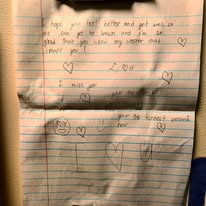 I hope you feel better and get well so
we can go to lunch and I'm so
glad that you liked my letter that
I made you
I ♡ U
I miss you
your the best
your the funnest person
ever
U